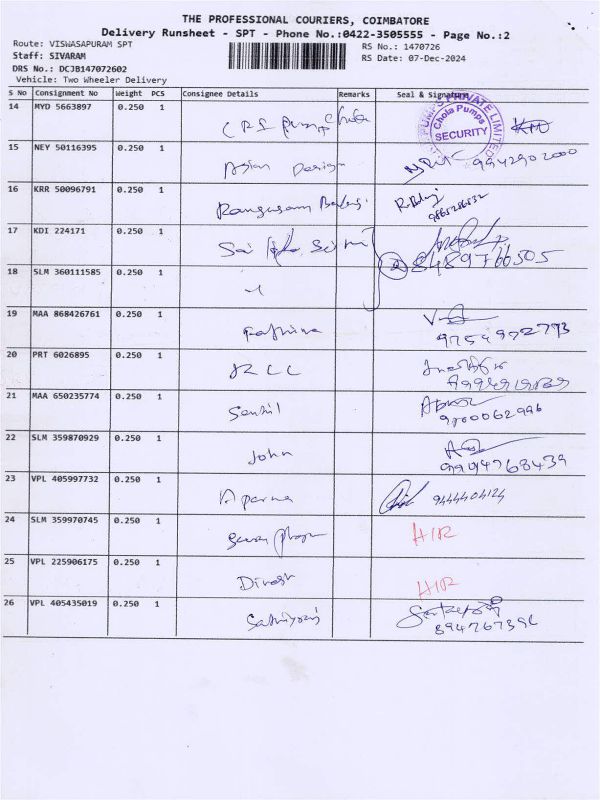 THE PROFESSIONAL COURIERS, COIMBATORE
Delivery Runsheet - SPT - Phone No.:0422-3505555 - Page No.:2
Route: VISWASAPURAM SPT
RS No.: 1470726
Staff: SIVARAM
RS Date: 07-Dec-2024
DRS No.: DCJB147072602
Vehicle: Two Wheeler Delivery
S No Consignment No Weight PCS Consignee Details Remarks Seal & Signature
14 MYD 5663897 0.250 1 CRI Pump
Chola Pumps
PRIVATE LIMITED
SECURITY
15 NEY 50116395 0.250 1 Asian Design 9942902000
16 KRR 50096791 0.250 1 9865286832
17 KDI 224171 0.250 1 Sai 8489766505
18 SLM 360111585 0.250 1
19 MAA 868426761 0.250 1 Fathima 9754992793
20 PRT 6026895 0.250 1
21 MAA 650235774 0.250 1 Senthil
22 SLM 359870929 0.250 1 John 9904768439
23 VPL 405997732 0.250 1 Aparna 9444404124
24 SLM 359970745 0.250 1
25 VPL 225906175 0.250 1 Dinesh
26 VPL 405435019 0.250 1